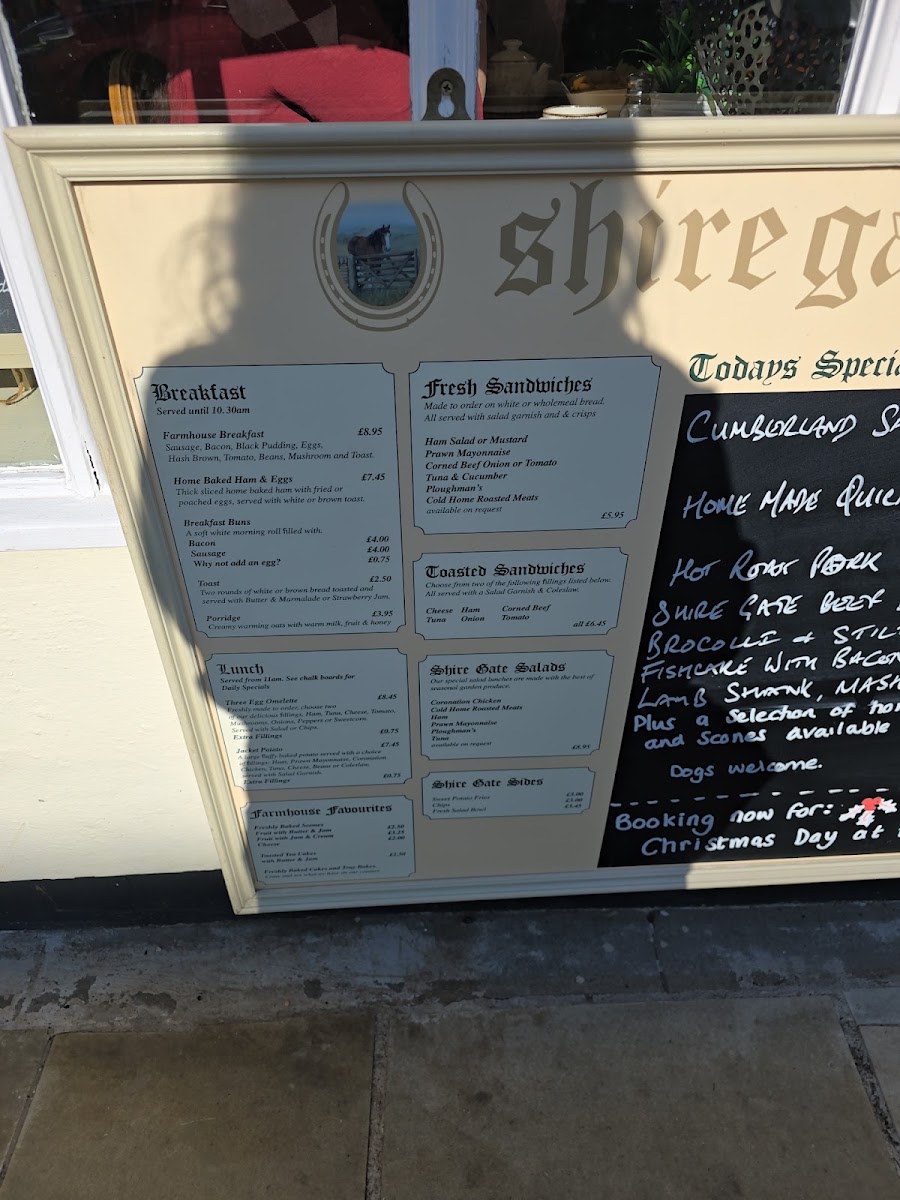 shirega
Breakfast
Served until 10.30am
Farmhouse Breakfast £8.95
Sausage, Bacon, Black Pudding, Eggs,
Hash Brown, Tomato, Beans, Mushroom and Toast.
Home Baked Ham & Eggs £7.45
Thick sliced home baked ham with fried or
poached eggs, served with white or brown toast.
Breakfast Buns
A soft white morning roll filled with.
Bacon £4.00
Sausage £4.00
Why not add an egg? £0.75
Toast £2.50
Two rounds of white or brown bread toasted and
served with Butter & Marmalade or Strawberry Jam.
Porridge £3.95
Creamy warming oats with warm milk, fruit & honey
Lunch
Served from 11am. See chalk boards for
Daily Specials
Three Egg Omelette £8.45
Freshly made to order, choose two
of our delicious fillings, Ham, Tuna, Cheese, Tomato,
Mushrooms, Onions, Peppers or Sweetcorn.
Served with Salad or Chips.
Extra Fillings £0.75
Jacket Potato £7.45
A large fluffy baked potato served with a choice
of fillings. Ham, Prawn Mayonnaise, Coronation
Chicken, Tuna, Cheese, Beans or Coleslaw.
served with Salad Garnish.
Extra Fillings £0.75
Farmhouse Favourites
Freshly Baked Scones
Fruit with Butter & Jam £2.50
Fruit with Jam & Cream £3.25
Cheese
Toasted Tea Cakes
with Butter & Jam
Freshly Baked Cakes and Tray Bakes.
Fresh Sandwiches
Made to order on white or wholemeal bread.
All served with salad garnish and & crisps
Ham Salad or Mustard
Prawn Mayonnaise
Corned Beef Onion or Tomato
Tuna & Cucumber
Ploughman's
Cold Home Roasted Meats
available on request
£5.95
Toasted Sandwiches
Choose from two of the following fillings listed below.
All served with a Salad Garnish & Coleslaw.
Cheese Ham Corned Beef
Tuna Onion Tomato all £6.45
Shire Gate Salads
Our special salad lunches are made with the best of
seasonal garden produce.
Coronation Chicken
Cold Home Roasted Meats
Ham
Prawn Mayonnaise
Ploughman's
Tuna
available on request £8.95
Shire Gate Sides
Sweet Potato Fries £3.00
Chips £3.00
Fresh Salad Bowl £3.45
Todays Specia
CUMBERLAND SA
HOME MADE QUIC
HOT ROAST PORK
SHIRE GATE BEEF
BROCOLLI & STILT
FISHCAKE WITH BACON
LAMB SHANK, MASH
Plus a selection of ho
and scones available
Dogs welcome.
Booking now for:
Christmas Day at